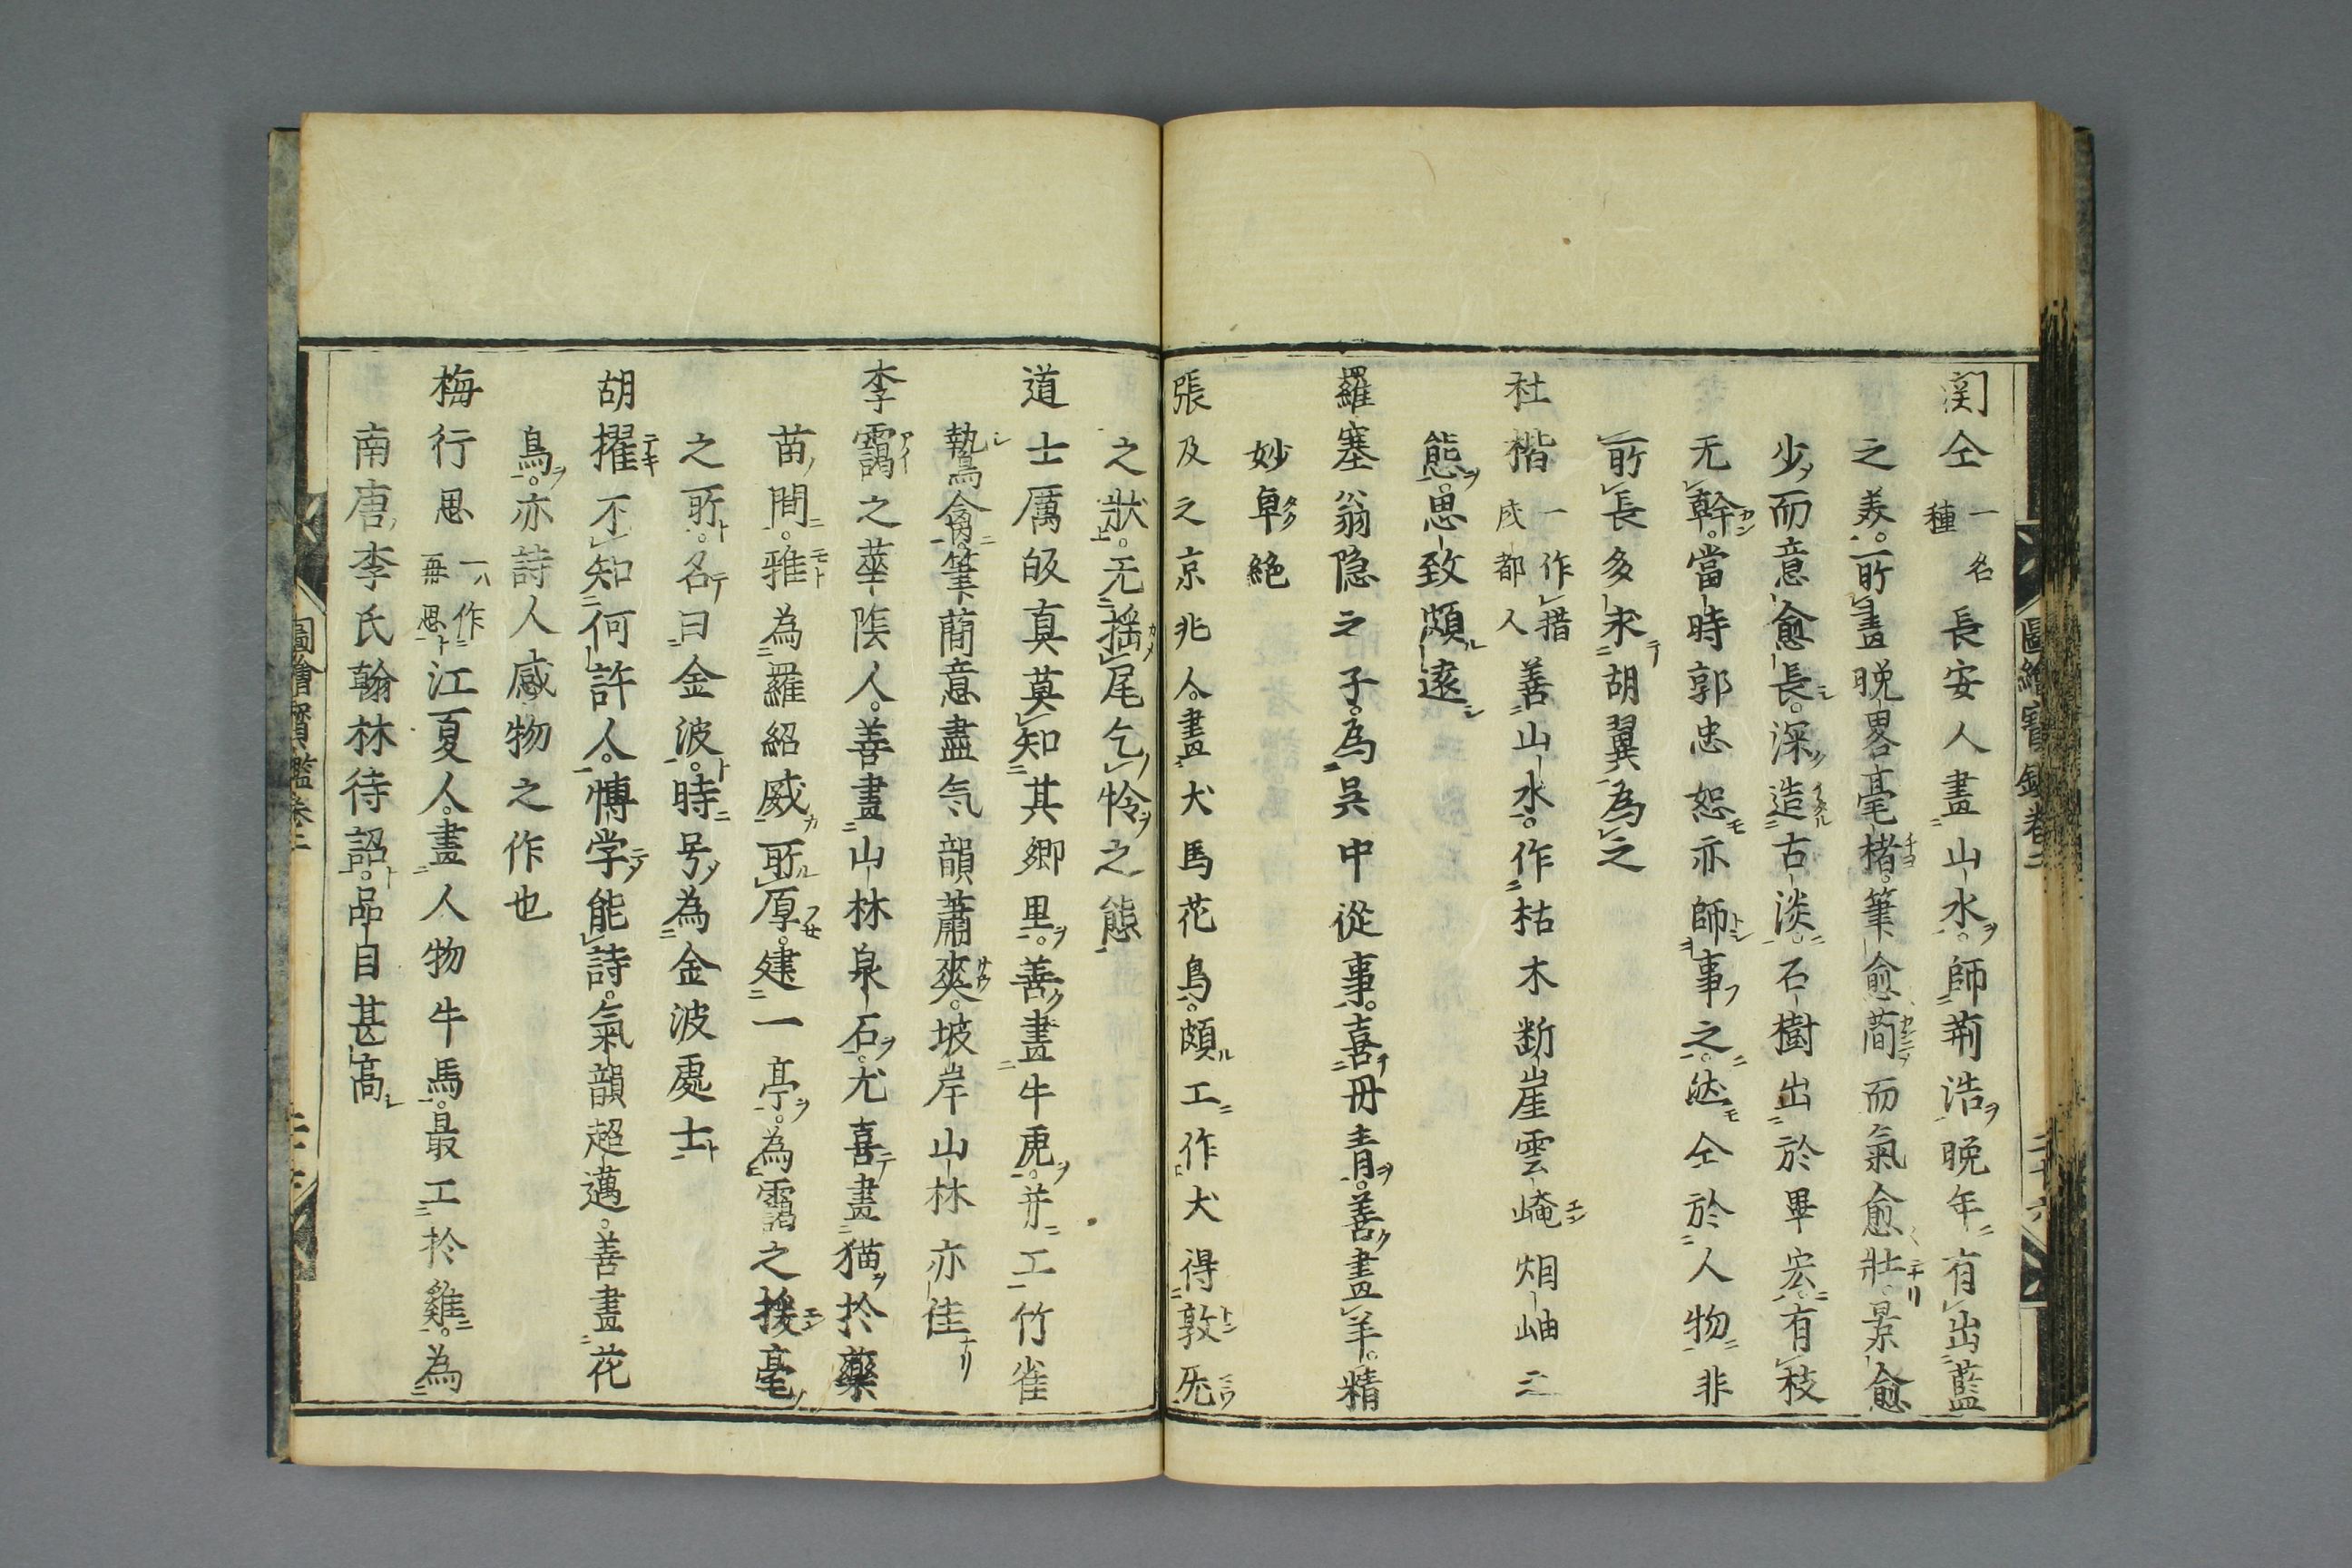 関仝一名種長安人畫山水。師荊浩晩年有出藍
之美。所畫晩畧毫楮。筆愈簡而氣愈壯。景愈
少而意愈長。深造古淡。石樹出於畢宏。有枝
无幹。當時郭忠恕亦師事之。然仝於人物非
所長多求胡翼為之
杜楷一作措成都人善山水。作枯木断崖雲崦烟岫之
態。思致頗遠
羅塞翁隐之子。為呉中從事。喜丹青。善畫羊。精
妙卓絶
張及之京兆人。畫犬馬花鳥。頗工作犬得敦厖
之狀。无揺尾乞怜之態
道士厲皈真莫知其郷里。善畫牛虎。并工竹雀
鷙禽。筆蕳意盡気韻蕭爽。坡岸山林亦佳
李靄之華陰人。善畫山林泉石。尤喜畫猫於藥
苗間。雅為羅紹威所厚。建一亭。為靄之援毫
之所。名曰金波。時号為金波處士
胡擢不知何許人。博学能詩。氣韻超邁。善畫花
鳥。亦詩人感物之作也
梅行思一作再思江夏人。畫人物牛馬。最工於雞。為
南唐李氏翰林待詔。品目甚高
圖繪寳鑑卷二